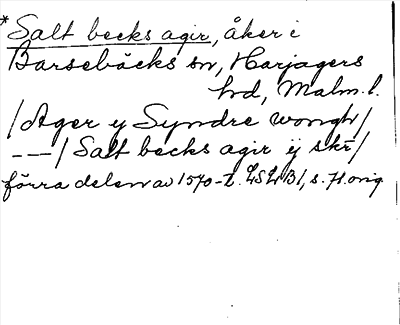 *Salt becks agir, åker i
Barsebäcks sn, Harjagers
hd, Malm. l.
/Ager y Syndre wongh/
---/ Salt becks agir ÿ skr/
förra delen av 1570-t. LSLB1, s. 71. orig